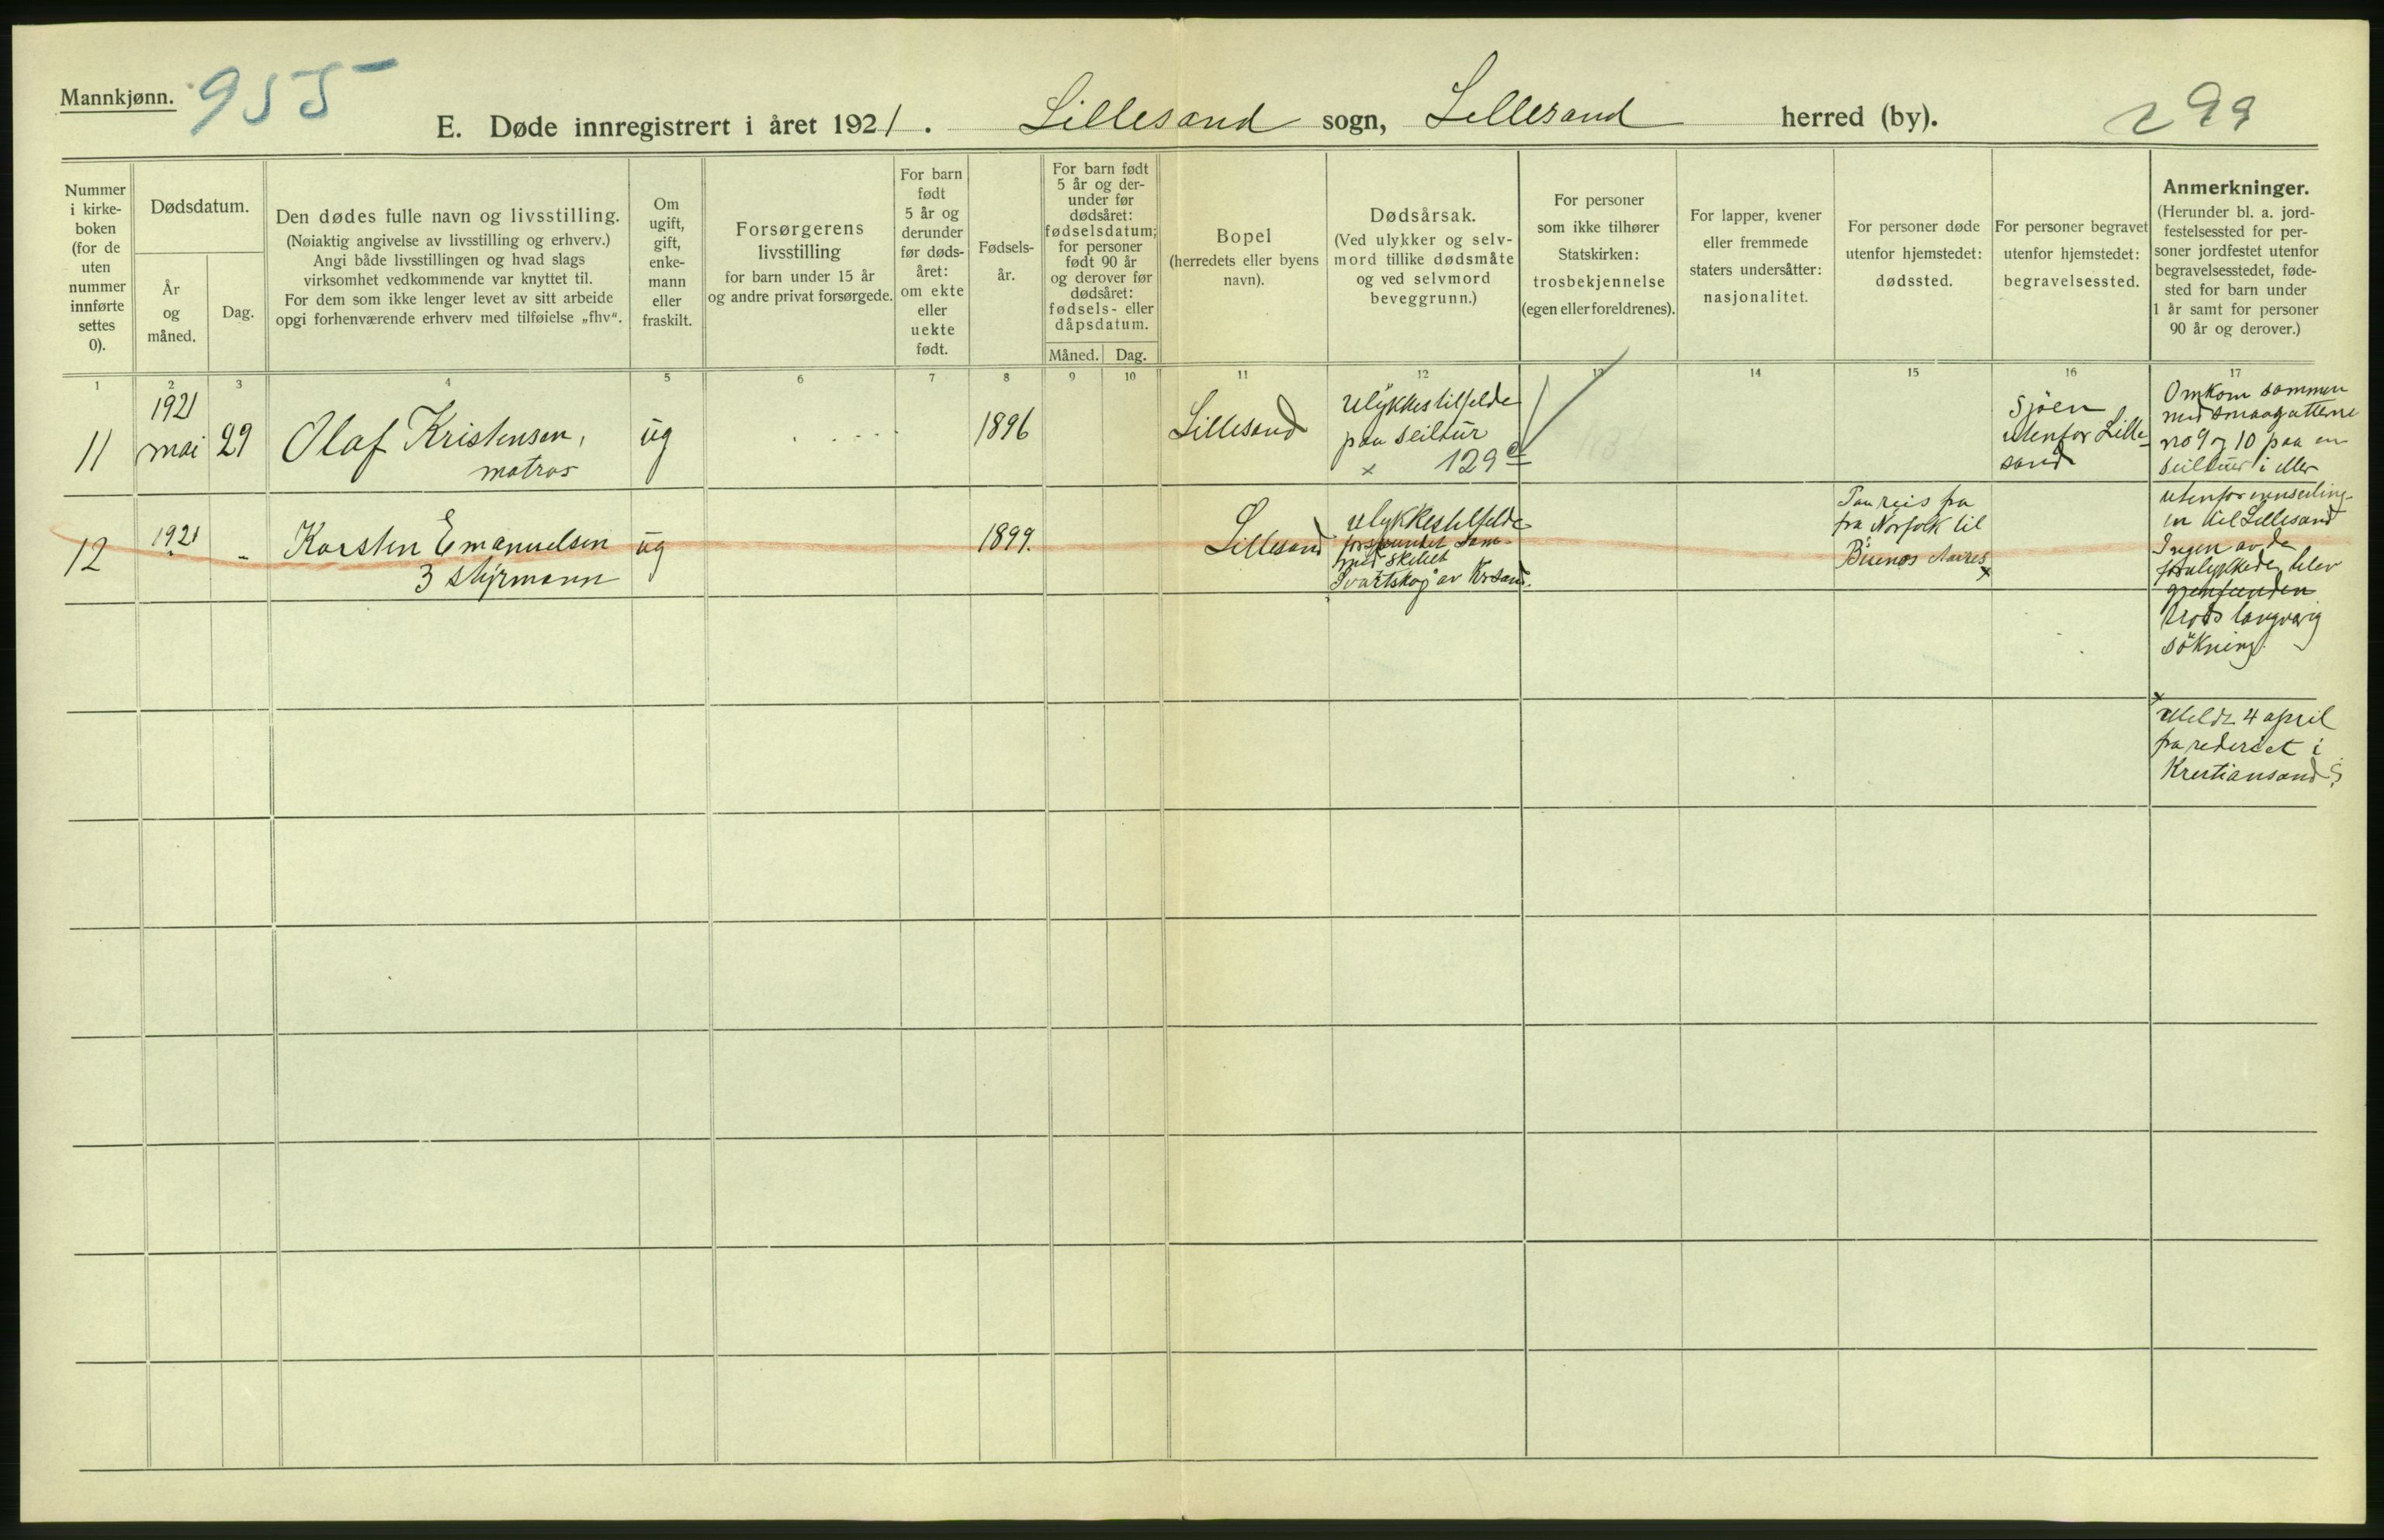 Mannkjønn.
955
E. Døde innregistrert i året 1921. Lillesand sogn, Lillesand herred (by).
299
Nummer
i kirke-
boken
(for de
uten
nummer
innførte
settes
0).
Dødsdatum.
År
og
måned.
Dag.
Den dødes fulle navn og livsstilling.
(Nøiaktig angivelse av livsstilling og erhverv.)
Angi både livsstillingen og hvad slags
virksomhet vedkommende var knyttet til.
For dem som ikke lenger levet av sitt arbeide
opgi forhenværende erhverv med tilføielse „fhv“.
Om
ugift,
gift,
enke-
mann
eller
fraskilt.
Forsørgerens
livsstilling
for barn under 15 år
og andre privat forsørgede.
For barn
født
5 år og
derunder
før døds-
året:
om ekte
eller
uekte
født.
Fødsels-
år.
For barn født
5 år og der-
under før
dødsåret:
fødselsdatum;
for personer
født 90 år
og derover før
dødsåret:
fødsels- eller
dåpsdatum.
Måned. Dag.
Bopel
(herredets eller byens
navn).
Dødsårsak.
(Ved ulykker og selv-
mord tillike dødsmåte
og ved selvmord
beveggrunn.)
For personer
som ikke tilhører
Statskirken:
trosbekjennelse
(egen eller foreldrenes).
For lapper, kvener
eller fremmede
staters undersåtter:
nasjonalitet.
For personer døde
utenfor hjemstedet:
dødssted.
For personer begravet
utenfor hjemstedet:
begravelsessted.
Anmerkninger.
(Herunder bl. a. jord-
festelsessted for per-
soner jordfestet utenfor
begravelsesstedet, føde-
sted for barn under
1 år samt for personer
90 år og derover.)
1 2 3 4 5 6 7 8 9 10 11 12 13 14 15 16 17
11
1921
mai
29
Olaf Kristensen,
matros
ug
1896
Lillesand
Ulykkestilfelde
paa seiltur
x 129
Sjøen
utenfor Lille-
sand
Omkom sammen
med smaagutterne
no 9 og 10 paa en
seiltur i eller
utenfor innseiling-
en til Lillesand
Ingen av de
forulykkede blev
gjenfunden
trods langvarig
søkning.
12
1921
-
Karsten Emanuelsen
3 styrmann
ug
1899.
Lillesand
Ulykkestilfelde
forsvundet sam-
med skibet
"Svartskog" av Krsand.
Paa reis fra
fra Norfolk til
Buenos Aaires
x
x
Meldt 4 april
fra rederiet i
Kristiansand S.